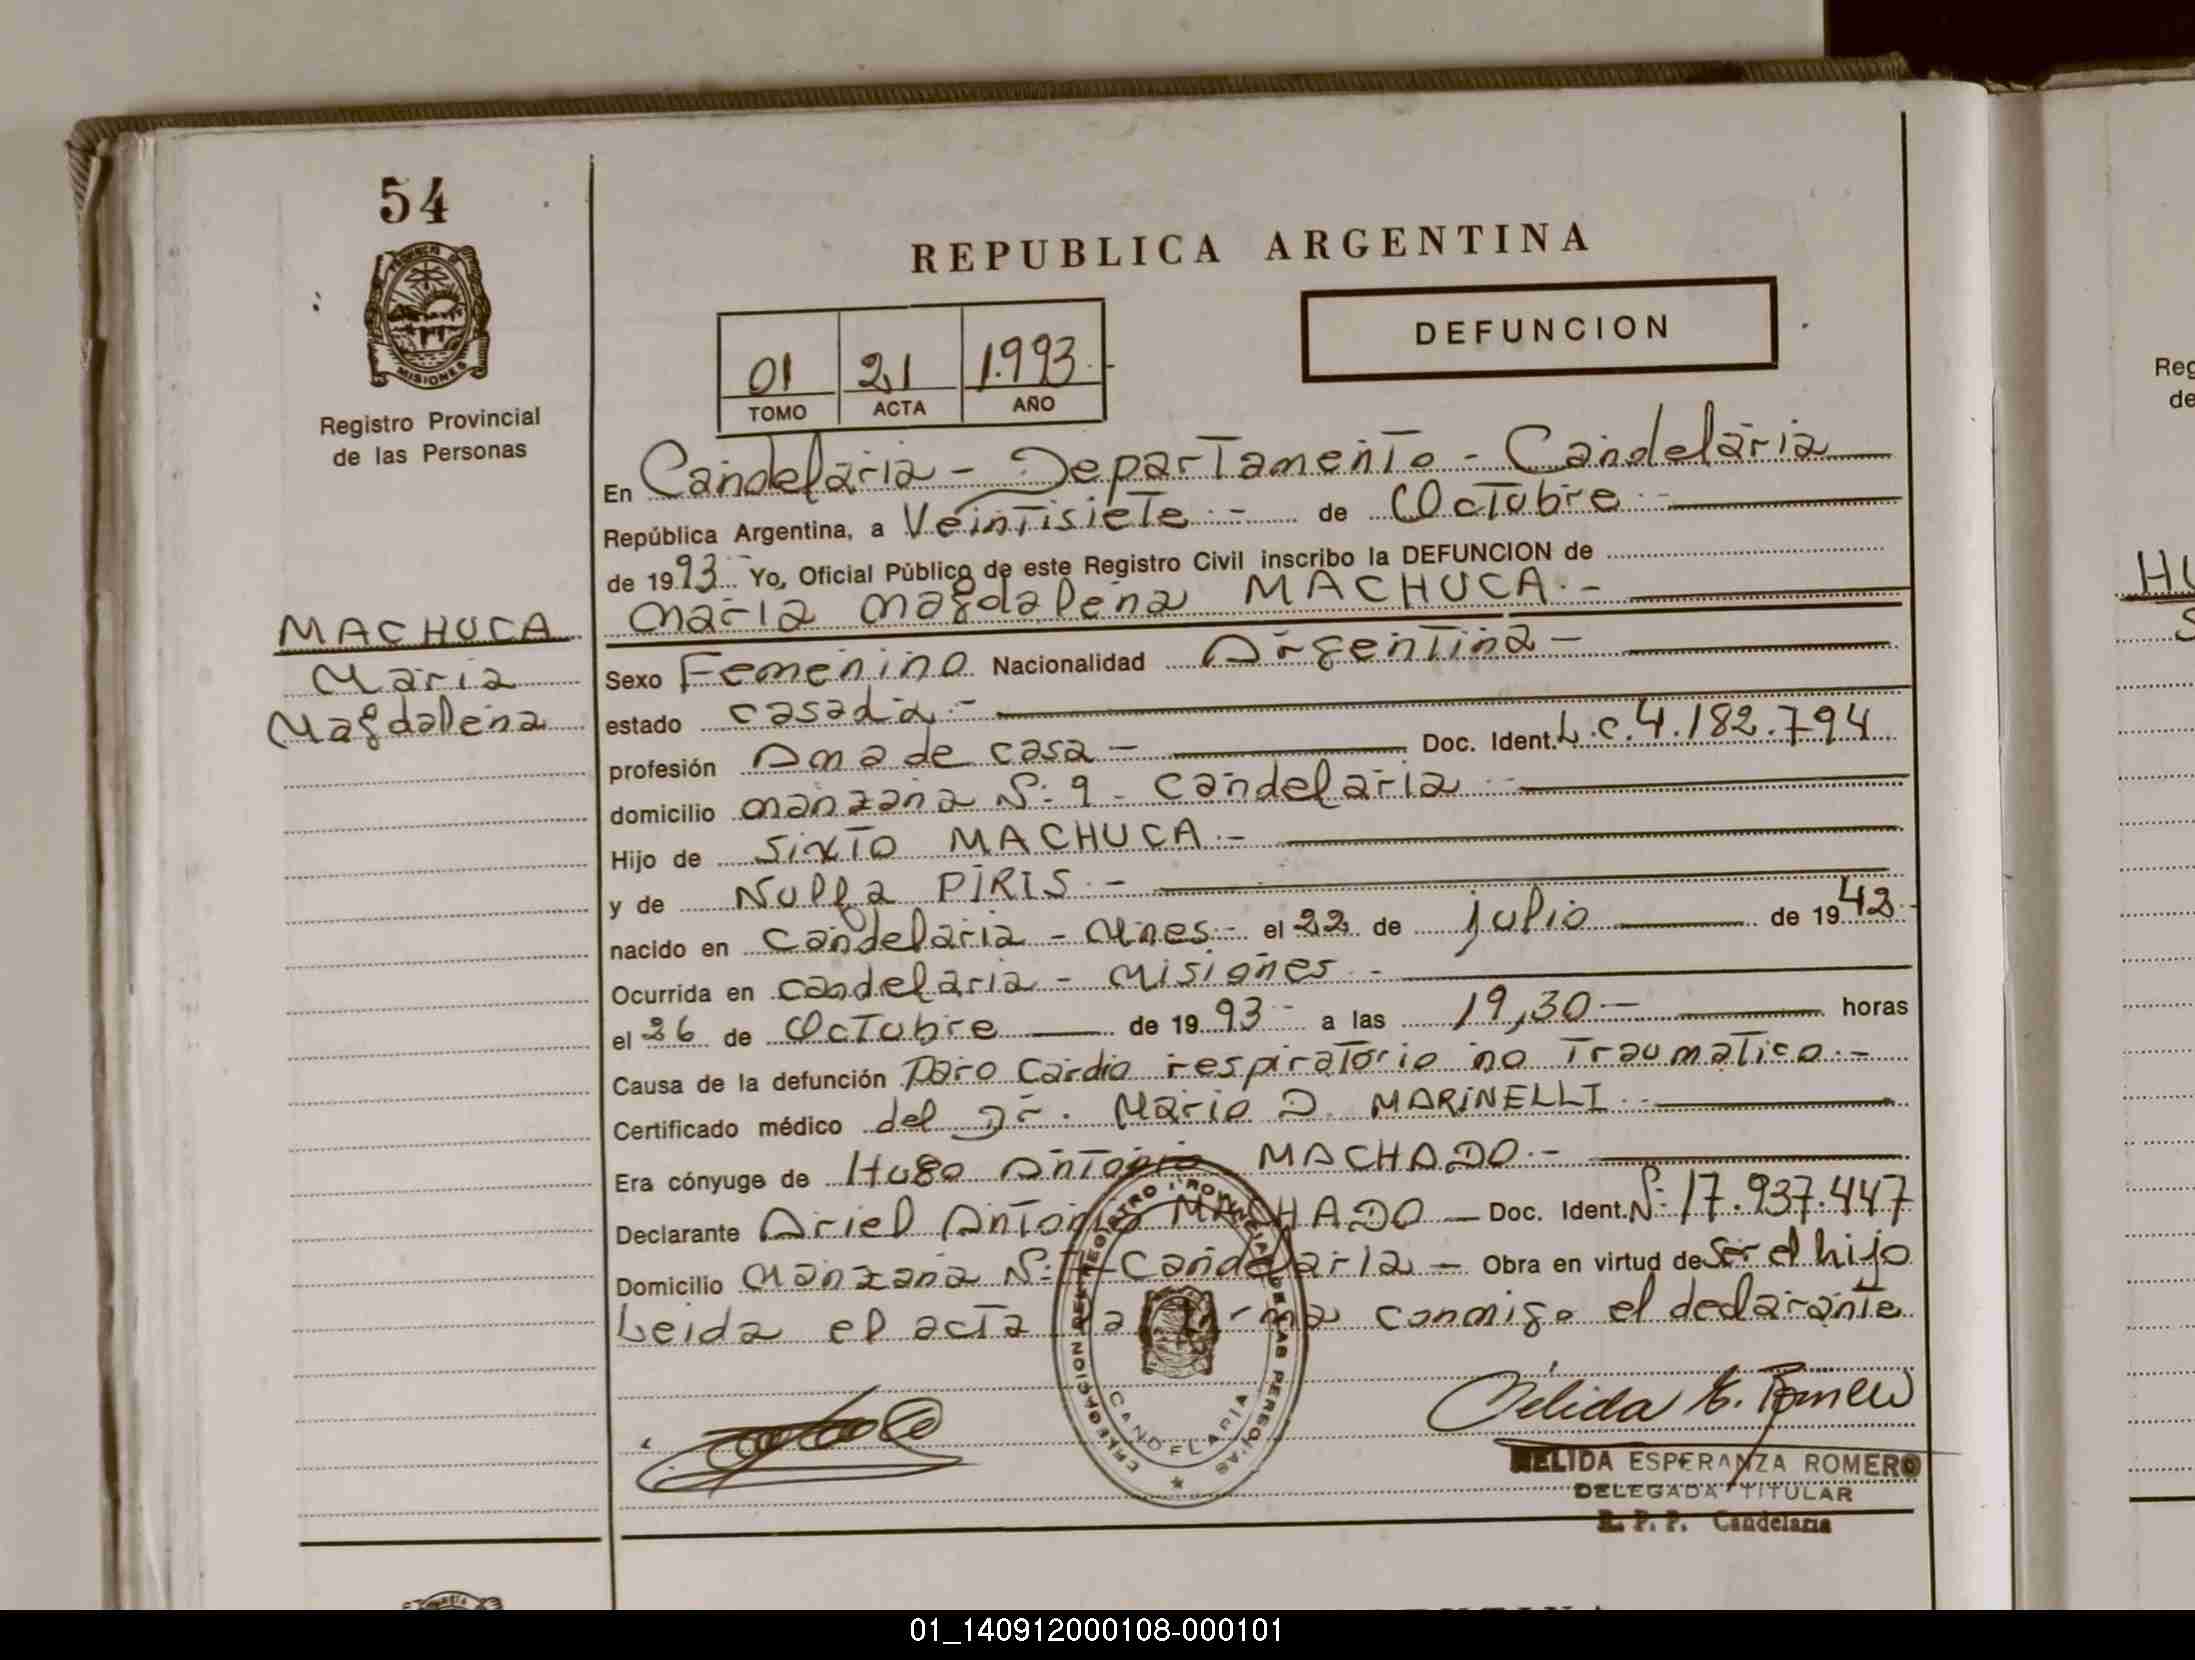 54
MISIONES
Registro Provincial
de las Personas
REPUBLICA ARGENTINA
DEFUNCION
01 21 1.993.-
TOMO ACTA AÑO
En Candelaria - Departamento - Candelaria
República Argentina, a Veintisiete.- de Octubre.-
de 1993 Yo, Oficial Público de este Registro Civil inscribo la DEFUNCION de
Maria Magdalena MACHUCA.-
MACHUCA
Maria
Magdalena
Sexo Femenino Nacionalidad Argentina-
estado casada.-
profesión Ama de casa- Doc. Ident. L.C. 4.182.794
domicilio Manzana Nº 9 - Candelaria.-
Hijo de Sixto MACHUCA.-
y de PIRIS.-
nacido en Candelaria - Mnes.- el 22 de julio de 1942.-
Ocurrida en Candelaria - Misiones.-
el 26 de Octubre de 1993- a las 19,30- horas
Causa de la defunción Paro Cardio respiratorio no Traumatico.-
Certificado médico del Dr. Mario D. MARINELLI.-
Era cónyuge de Hugo Antonio MACHADO.-
Declarante Ariel Antonio MACHADO - Doc. Ident. Nº 17.937.447
Domicilio Manzana Nº Candelaria - Obra en virtud de Ser el hijo
Leida el acta la firma conmigo el declarante
DEL REGISTRO PROVINCIAL DE LAS PERSONAS
CANDELARIA
Nélida E. Romero
NELIDA ESPERANZA ROMERO
DELEGADA TITULAR
R. P. P. Candelaria
Reg
de
HU
S
01_140912000108-000101